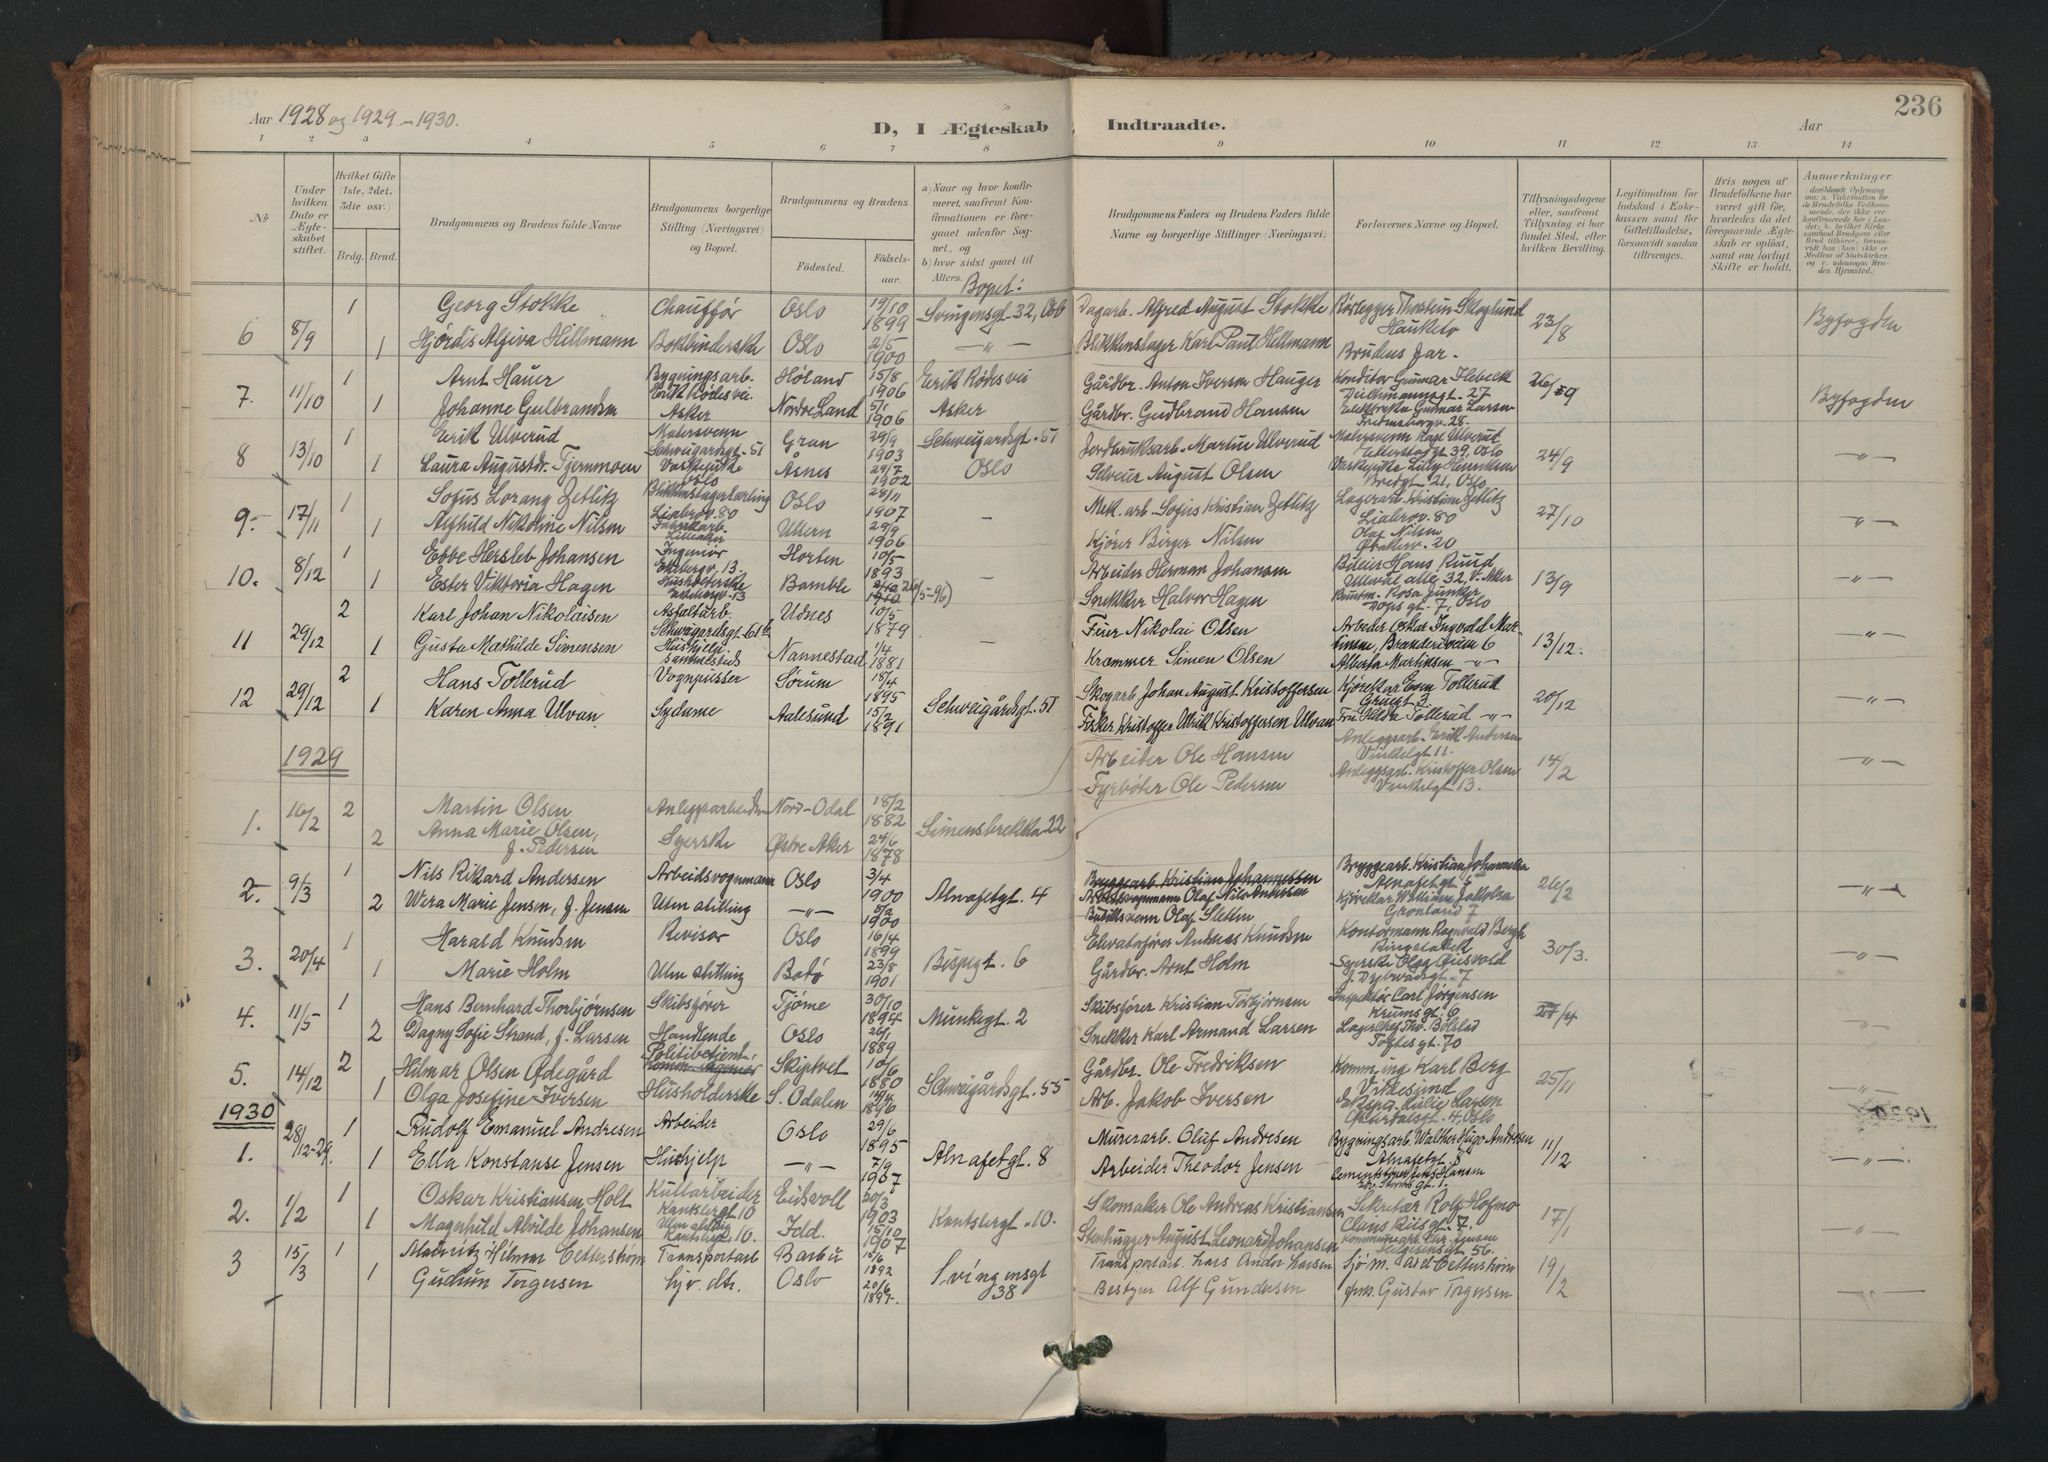 Aar 1928 og 1929 - 1930.
D, I Ægteskab Indtraadte.
Aar
236
1 2 3 4 5 6 7 8 9 10 11 12 13 14
No
Under hvilken Dato er Ægteskabet stiftet.
Hvilket Gifte (1ste, 2det, 3die osv.)
Brdg. Brud.
Brudgommens og Brudens fulde Navne
Brudgommens borgerlige Stilling (Næringsvei) og Bopæl.
Brudgommens og Brudens
Födested.
Födselsaar.
a) Naar og hvor konfirmeret, saafremt Konfirmationen er foregaaet udenfor Sognet, og
b) hvor sidst gaaet til Alters.
Bopæl:
Brudgommens Faders og Brudens Faders fulde Navne og borgerlige Stillinger (Næringsvei)
Forlovernes Navne og Bopæl.
Tillysningsdagene eller, saafremt Tillysning ei har fundet Sted, efter hvilken Bevilling.
Legitimation for Indskud i Enkekassen samt for Giftetilladelse, forsaavidt saadan tiltrænges.
Hvis nogen af Brudefolkene har været gift før, hvorledes da det foregaaende Ægteskab er oplöst, samt om lovligt Skifte er holdt.
Anmærkninger
6 8/9 1 Georg Stokke Chauffør Oslo 19/10 1899 Svingensgt 32, Oslo Dagarb. Alfred August Stokke Rørlegger Thorstein Skoglund Hauketo 23/8 Byfogden
1 Hjørdis Alfiva Hellmann Bokbinderske Oslo 2/5 1900 -"- Blikkenslager Karl Paul Hellmann Brudens far -
7. 11/10 1 Arnt Hauer Bygningsarb. Erik Rødes vei Høland 15/8 1906 Erik Rødes vei Gårdbr. Anton Iverson Hauger Konditor Gunnar Deichmannsgt. 27 26/9 Byfogden
1 Johanne Gulbrandsen Asker Nordre Land 5/1 1906 Asker Gårdbr. Gudbrand Hansen Gunnar Larsen Fredensborgv. 28.
8 13/10 1 Eerik Ulverud Malersvenn Schweigaardsgt. 51 Gran 29/9 1903 Schweigaardsgt. 51 Jordbruksarb. Martin Ulverud Malersvenn Karl Ulverud 39, Oslo 24/9 -"-
1 Laura Augustdr. Tjernmoen Oslo Åsnes 29/7 1902 Oslo Selveier August Olsen Lilly Henriksen Bredgt. 21, Oslo
9.- 17/11 1 Sofus Lorang Zetlitz Blikkenslagerlærling Liabrov. 80 Oslo 28/11 1907 - Mek. arb. Sofus Kristian Zetlitz Lagerarb. Kristian Zetlitz Liabrov. 80 27/10 -"-
1 Alfhild Nikoline Nilsen Fabrikarb. Lilleaker Ullern 29/9 1906 Kjører Birger Nilsen Olaf Nilsen 20
10. 8/12 1 Ebbe Hersleb Johansen Ingeniør Ekebergv. 13. Horten 10/5 1893 - Arbeider Herman Johansen Bileier Hans Ruud Ullevål alle 32, V. Aker 13/9 -"-
1 Ester Viktoria Hagen Husholderske Bamble Snekker Halvor Hagen Rosa Junker Dops gt. 7, Oslo
11 29/12 2 Karl Johan Nikolaisen Asfaltarb. Schweigaardsgt. 61b Udnes 10/5 1879 - Eier Nikolai Olsen Arbeider Oskar Ingvald Martinsen, 6 13/12. -"-
1 Gusta Mathilde Simensen Hushjelp sammesteds Nannestad 1/4 1881 Krammer Simen Olsen Alberta Martinsen -"-
12 29/12 2 Hans Tollerud Vognpusser Sørum 18/4 1895 Schweigårdsgt. 51 Skogarb. Johan August Kristoffersen Kjørekar Even Tollerud 20/12 -"-
1 Karen Anna Ulvan Sydame Aalesund 15/2 1891 Fisker Kristoffer Ulrik Kristoffersen Ulvan Fru Hilda Tollerud -"-
1929
1. 16/2 2 Martin Olsen Anleggsarbeider Nord-Odal 18/2 1882 Simensbrekka 22 Arbeider Ole Hansen Anleggsarb. Erik Andersen Vinkelgt 11. 14/2 -"-
2 Anna Marie Olsen, f. Pedersen Syerske Østre Aker 24/6 1878 Fyrbøter Ole Pedersen Anleggsarb. Kristoffer Olsen Vinkelgt 13.
2.- 9/3 1 Nils Rikard Andersen Arbeidsvognmann Oslo 3/4 1900 Alnafetgt. 4 Bryggearb. Kristian Johannessen Arbeidsvognmann Olaf Nils Andersen Bryggearb. Kristian Johannessen Alnafetgt 6 26/2 -"-
2 Wera Marie Jensen, f. Jensen Uten stilling -"- 8/2 1900 Butikksvenn Olaf Sletten Kjørekar William Grønland 7
3. 20/4 1 Harald Knudsen Revisor Oslo 16/4 1899 Bispegt. 6 Elevatorfører Andreas Knudsen Kontormann Ragnvald Bergh 30/3. -"-
1 Marie Holm Uten stilling Bodø 23/8 1901 Gårdbr. Arnt Holm Syerske Olga f. Dybwadsgt. 7
4. 11/5 1 Hans Bernhard Thorbjørnsen Skibsfører Tjøme 30/10 1894 Munkegt. 2 Skibsfører Kristian Torbjørnsen Inspektør Carl Jørgensen Krumsgt. 6 27/4 -"-
2 Dagny Sofie Strand, f. Larsen Handlende Oslo 26/1 1889 Snekker Karl Armand Larsen Lagerchef Thv. Bølstad Toftesgt. 70
5. 14/12 2 Hilmar Olsen Ødegård Politibetjent Skiptvet 10/6 1880 Schweigårdsgt. 55 Gårdbr. Ole Fredriksen Komm.ing. Karl Berg 25/11 -"-
1 Olga Josefine Iversen Husholderske S. Odalen 1896 Arb. Jakob Iversen Julie Larsen 4, Oslo
1930
1. 28/12-29. 1 Rudolf Emanuel Andresen Arbeider Oslo 29/6 1895 Alnafetgt. 8 Murerarb. Oluf Andresen Bygningsarb. Walther Hugo Andresen Alnafetgt. 8 11/12 -"-
1 Ella Konstanse Jensen Hushjelp -"- 7/9 1907 Arbeider Theodor Jensen Hansen
2. 1/2 1 Oskar Kristiansen Holt Kullarbeider Kantslergt 10 Eidsvoll 20/3 1903 Kantslergt. 10. Skomaker Ole Andreas Kristiansen Sekretær Rolf Hofmo Claus Riisgt. 7. 17/1 -"-
1 Magnhild Alvilde Johansen Uten stilling Kantslergt. 10. Idd. 15/10 1907 Stenhugger August Leonard Johansen Kommunearb. Chr. Jensen Helgesensgt 56.
3 15/3 1 Mauritz Hilmer Cetterstrøm Transportarb Barbu 15/6 1892 Svingensgt 38 Transportarb. Lars Andor Larsen Sjøm. Axel Cetterstrøm 19/2 -"-
1 Gudrun Torgersen hjv. dtr. Oslo 20/6 1897. Bestyrer Alf Gundersen Gustav Torgersen